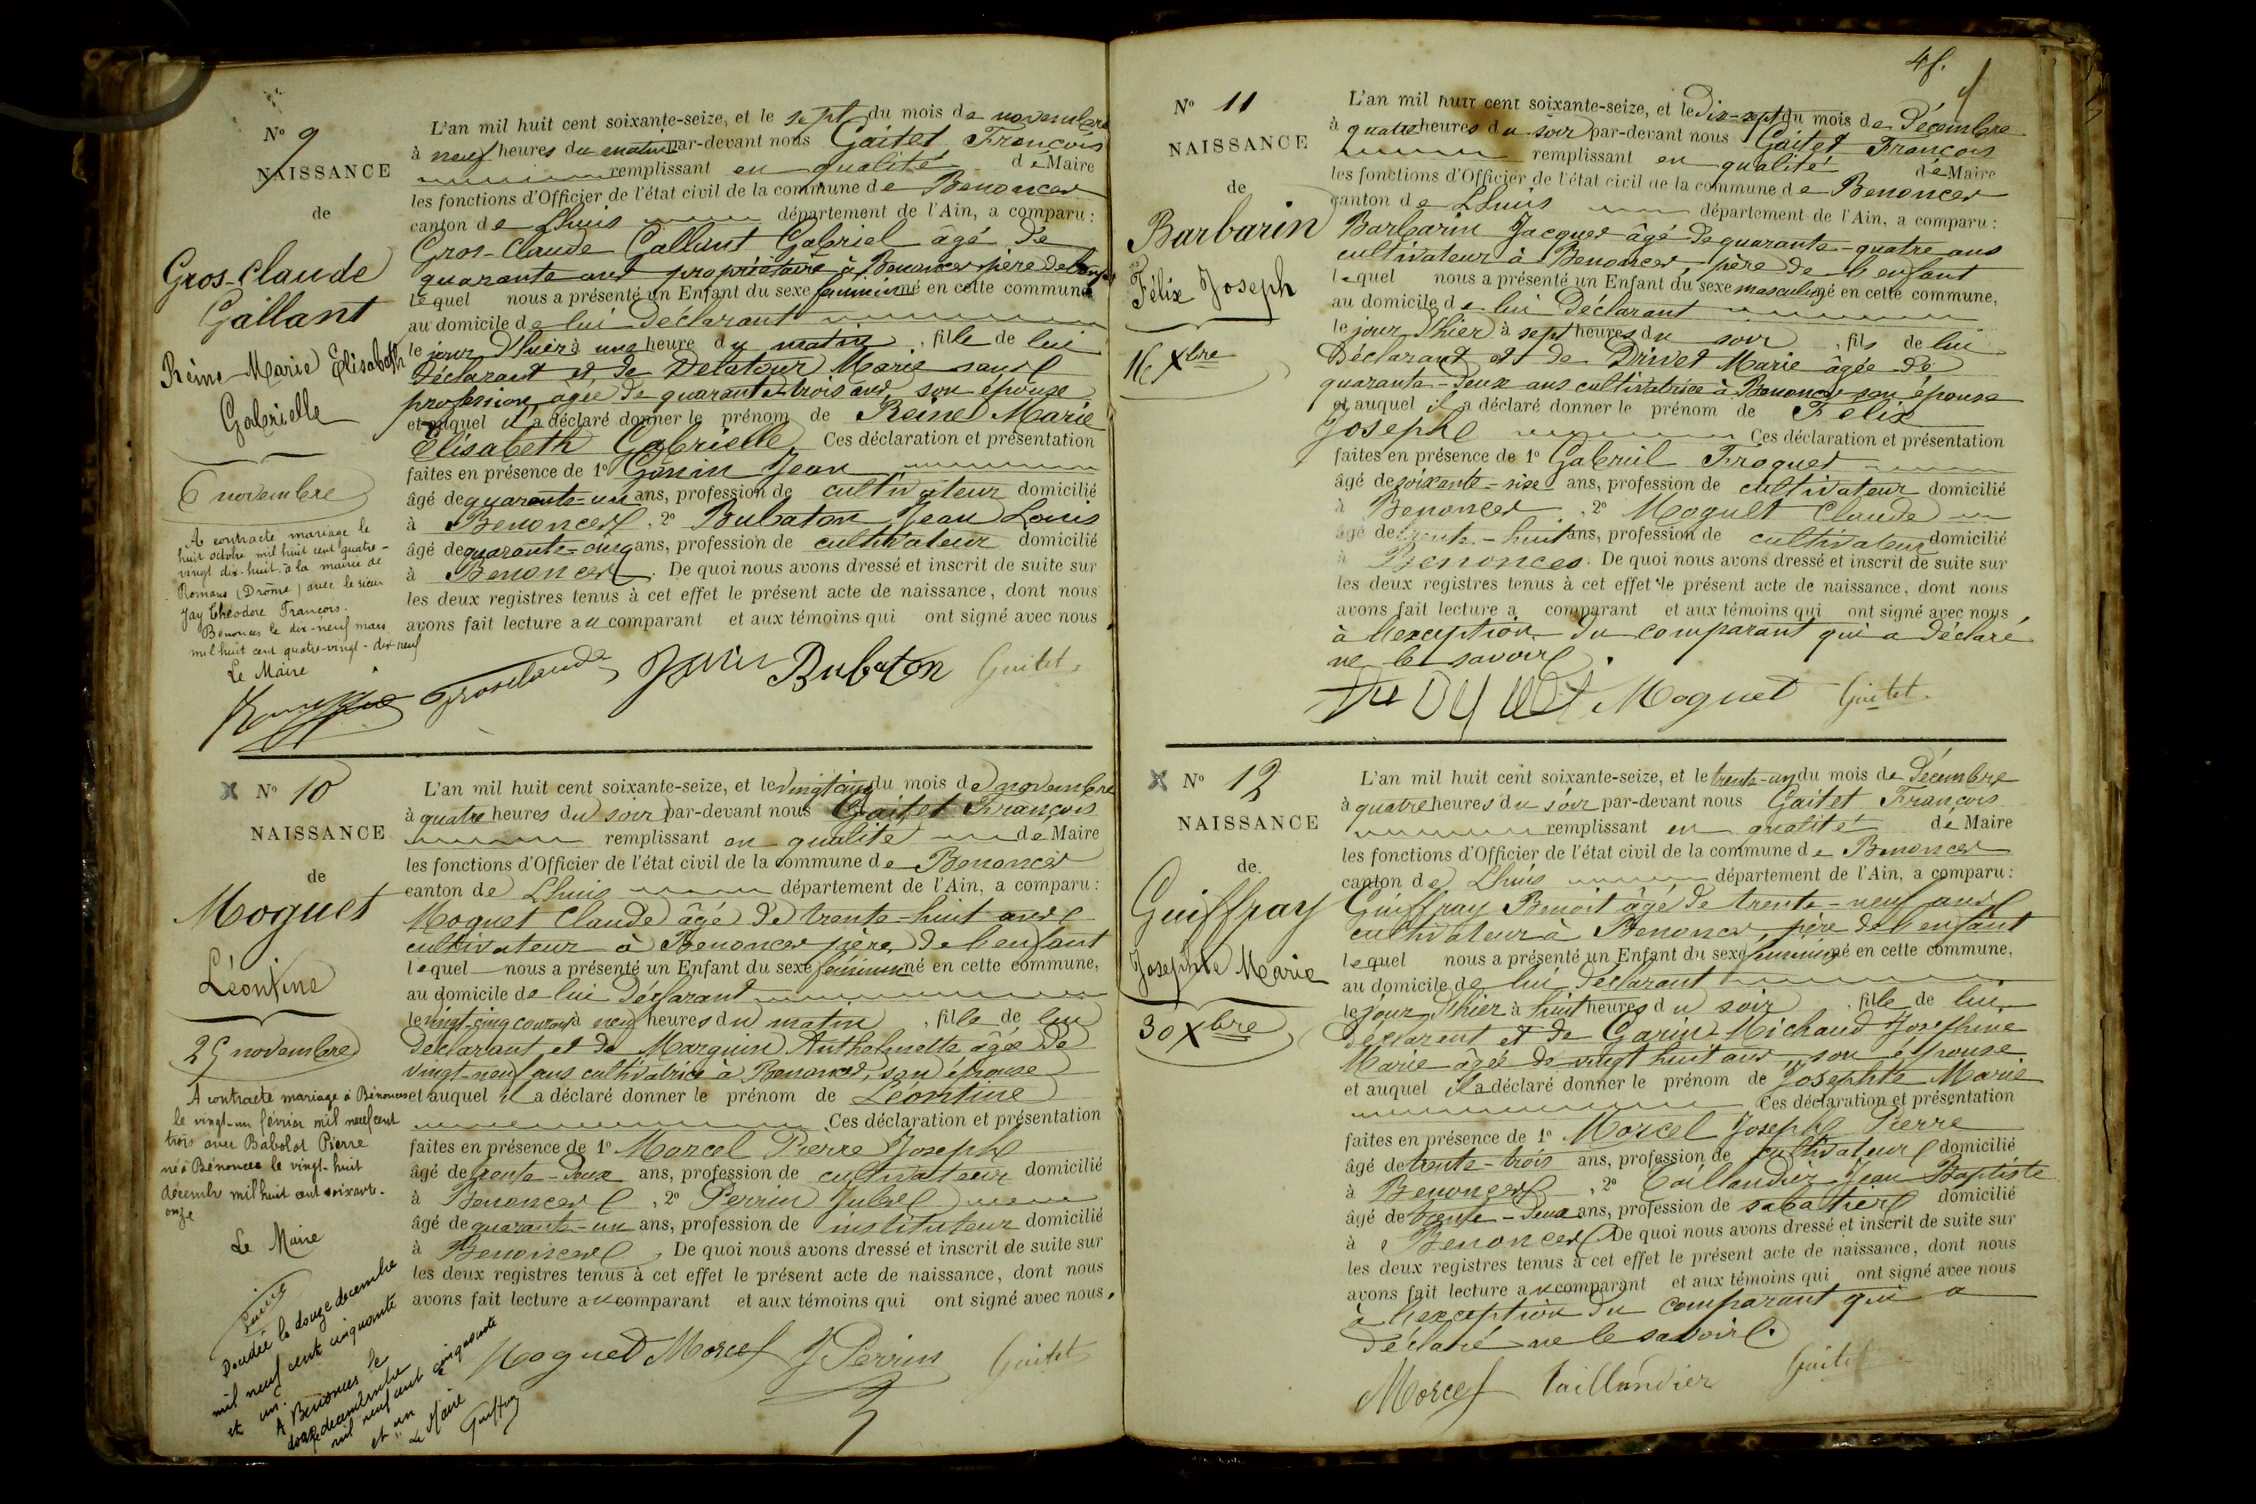 N° 9
NAISSANCE
de
Gros-Claude
Gallant
Reine Marie Elisabeth
Gabrielle
6 novembre
A contracté mariage le
huit octobre mil huit cent quatre-
vingt dix-huit à la mairie de
Romans (Drôme) avec le sieur
Jay Théodore François.
Benonces le dix-neuf mars
mil huit cent quatre-vingt-dix-neuf
Le Maire
L'an mil huit cent soixante-seize, et le sept du mois de novembre
à neuf heures du matin par-devant nous Gaitet François
remplissant en qualité de Maire
les fonctions d'Officier de l'état civil de la commune de Benonces
canton de Lhuis département de l'Ain, a comparu :
Gros-Claude Gallant Gabriel âgé de
quarante ans propriétaire à Benonces père de l'enfant
lequel nous a présenté un Enfant du sexe féminin né en cette commune
au domicile de lui déclarant
le jour d'hier à une heure du matin, fille de lui
déclarant et de Delatour Marie sans
profession âgée de quarante-trois ans son épouse
et auquel il a déclaré donner le prénom de Reine Marie
Elisabeth Gabrielle Ces déclaration et présentation
faites en présence de 1° Genin Jean
âgé de quarante-un ans, profession de cultivateur domicilié
à Benonces, 2° Bubaton Jean Louis
âgé de quarante-cinq ans, profession de cultivateur domicilié
à Benonces. De quoi nous avons dressé et inscrit de suite sur
les deux registres tenus à cet effet le présent acte de naissance, dont nous
avons fait lecture au comparant et aux témoins qui ont signé avec nous
Grosclaude Bubaton Gaitet
N° 10
NAISSANCE
de
Moguet
Léontine
25 novembre
A contracté mariage à Bénonces
le vingt-un février mil neuf cent
trois avec Babolat Pierre
né à Bénonces le vingt-huit
décembre mil huit cent soixante-
onze
Le Maire
Décédée le douze decembre
mil neuf cent cinquante
et un.
A Benonces le
douze decembre
mil neuf cent cinquante
et un
Le Maire
L'an mil huit cent soixante-seize, et le vingt cinq du mois de novembre
à quatre heures du soir par-devant nous Gaitet François
remplissant en qualité de Maire
les fonctions d'Officier de l'état civil de la commune de Benonces
canton de Lhuis département de l'Ain, a comparu :
Moguet Claude âgé de trente-huit ans
cultivateur à Benonces père de l'enfant
lequel nous a présenté un Enfant du sexe féminin né en cette commune,
au domicile de lui déclarant
le vingt-cinq courant à neuf heures du matin, fille de lui
déclarant et de Marguin Anthelmette âgée de
vingt-neuf ans cultivatrice à Benonces, son épouse
et auquel il a déclaré donner le prénom de Léontine
Ces déclaration et présentation
faites en présence de 1° Morcel Pierre Joseph
âgé de trente-deux ans, profession de cultivateur domicilié
à Benonces, 2° Perrin Jules
âgé de quarante-un ans, profession de instituteur domicilié
à Benonces. De quoi nous avons dressé et inscrit de suite sur
les deux registres tenus à cet effet le présent acte de naissance, dont nous
avons fait lecture au comparant et aux témoins qui ont signé avec nous.
Moguet Morcel J Perrin Gaitet
4f.
N° 11
NAISSANCE
de
Barbarin
Félix Joseph
16 Xbre
L'an mil huit cent soixante-seize, et le Dix-sept du mois de Décembre
à quatre heures du soir par-devant nous Gaitet François
remplissant en qualité de Maire
les fonctions d'Officier de l'état civil de la commune de Benonces
canton de Lhuis département de l'Ain, a comparu :
Barbarin Jacques âgé de quarante-quatre ans
cultivateur à Benonces, père de l'enfant
lequel nous a présenté un Enfant du sexe masculin né en cette commune,
au domicile de lui déclarant
le jour d'hier à sept heures du soir, fils de lui
déclarant et de Drivet Marie âgée de
quarante-deux ans cultivatrice à Benonces son épouse
et auquel il a déclaré donner le prénom de Félix
Joseph Ces déclaration et présentation
faites en présence de 1° Gabriel Froquet
âgé de soixante-six ans, profession de cultivateur domicilié
à Benonces, 2° Moguet Claude
âgé de trente-huit ans, profession de cultivateur domicilié
à Benonces. De quoi nous avons dressé et inscrit de suite sur
les deux registres tenus à cet effet le présent acte de naissance, dont nous
avons fait lecture a comparant et aux témoins qui ont signé avec nous
à l'exception du comparant qui a déclaré
ne le savoir.
Moguet Gaitet
N° 12
NAISSANCE
de
Guiffray
Josephte Marie
30 Xbre
L'an mil huit cent soixante-seize, et le trente-un du mois de Décembre
à quatre heures du soir par-devant nous Gaitet François
remplissant en qualité de Maire
les fonctions d'Officier de l'état civil de la commune de Benonces
canton de Lhuis département de l'Ain, a comparu :
Guiffray Benoit âgé de trente-neuf ans
cultivateur à Benonces, père de l'enfant
lequel nous a présenté un Enfant du sexe féminin né en cette commune,
au domicile de lui déclarant
le jour d'hier à huit heures du soir, fille de lui
déclarent et de Garin-Michaud Josephine
Marie âgée de vingt huit ans, son épouse
et auquel il a déclaré donner le prénom de Josephte Marie
Ces déclaration et présentation
faites en présence de 1° Morcel Joseph Pierre
âgé de trente-trois ans, profession de cultivateur domicilié
à Benonces, 2° Taillandier Jean Baptiste
âgé de trente-deux ans, profession de sabatier domicilié
à Benonces. De quoi nous avons dressé et inscrit de suite sur
les deux registres tenus à cet effet le présent acte de naissance, dont nous
avons fait lecture au comparant et aux témoins qui ont signé avec nous
à l'exception du comparant qui a
déclaré ne le savoir.
Morcel Taillandier Gaitet